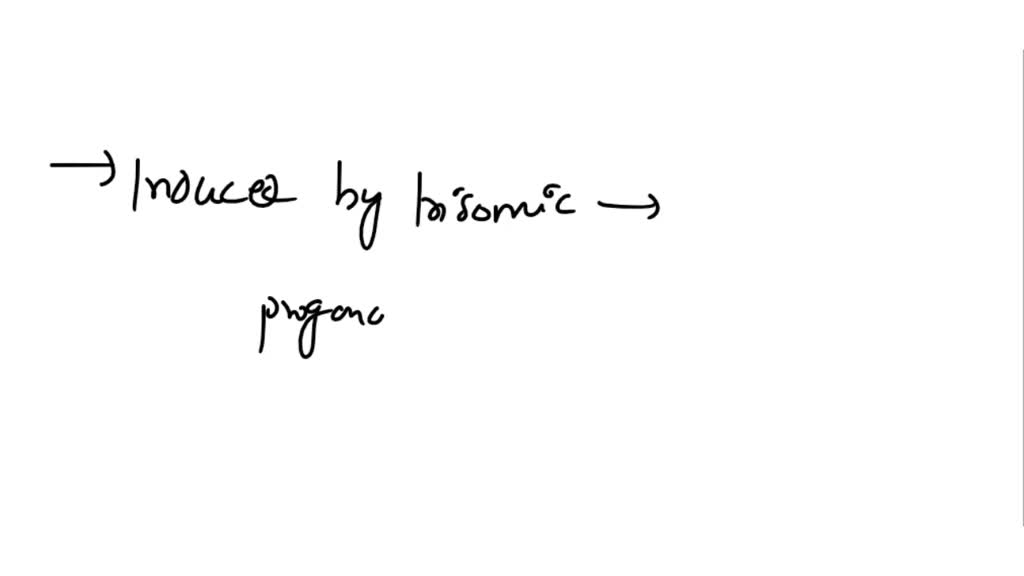 → Induced by trisomic →
progeno